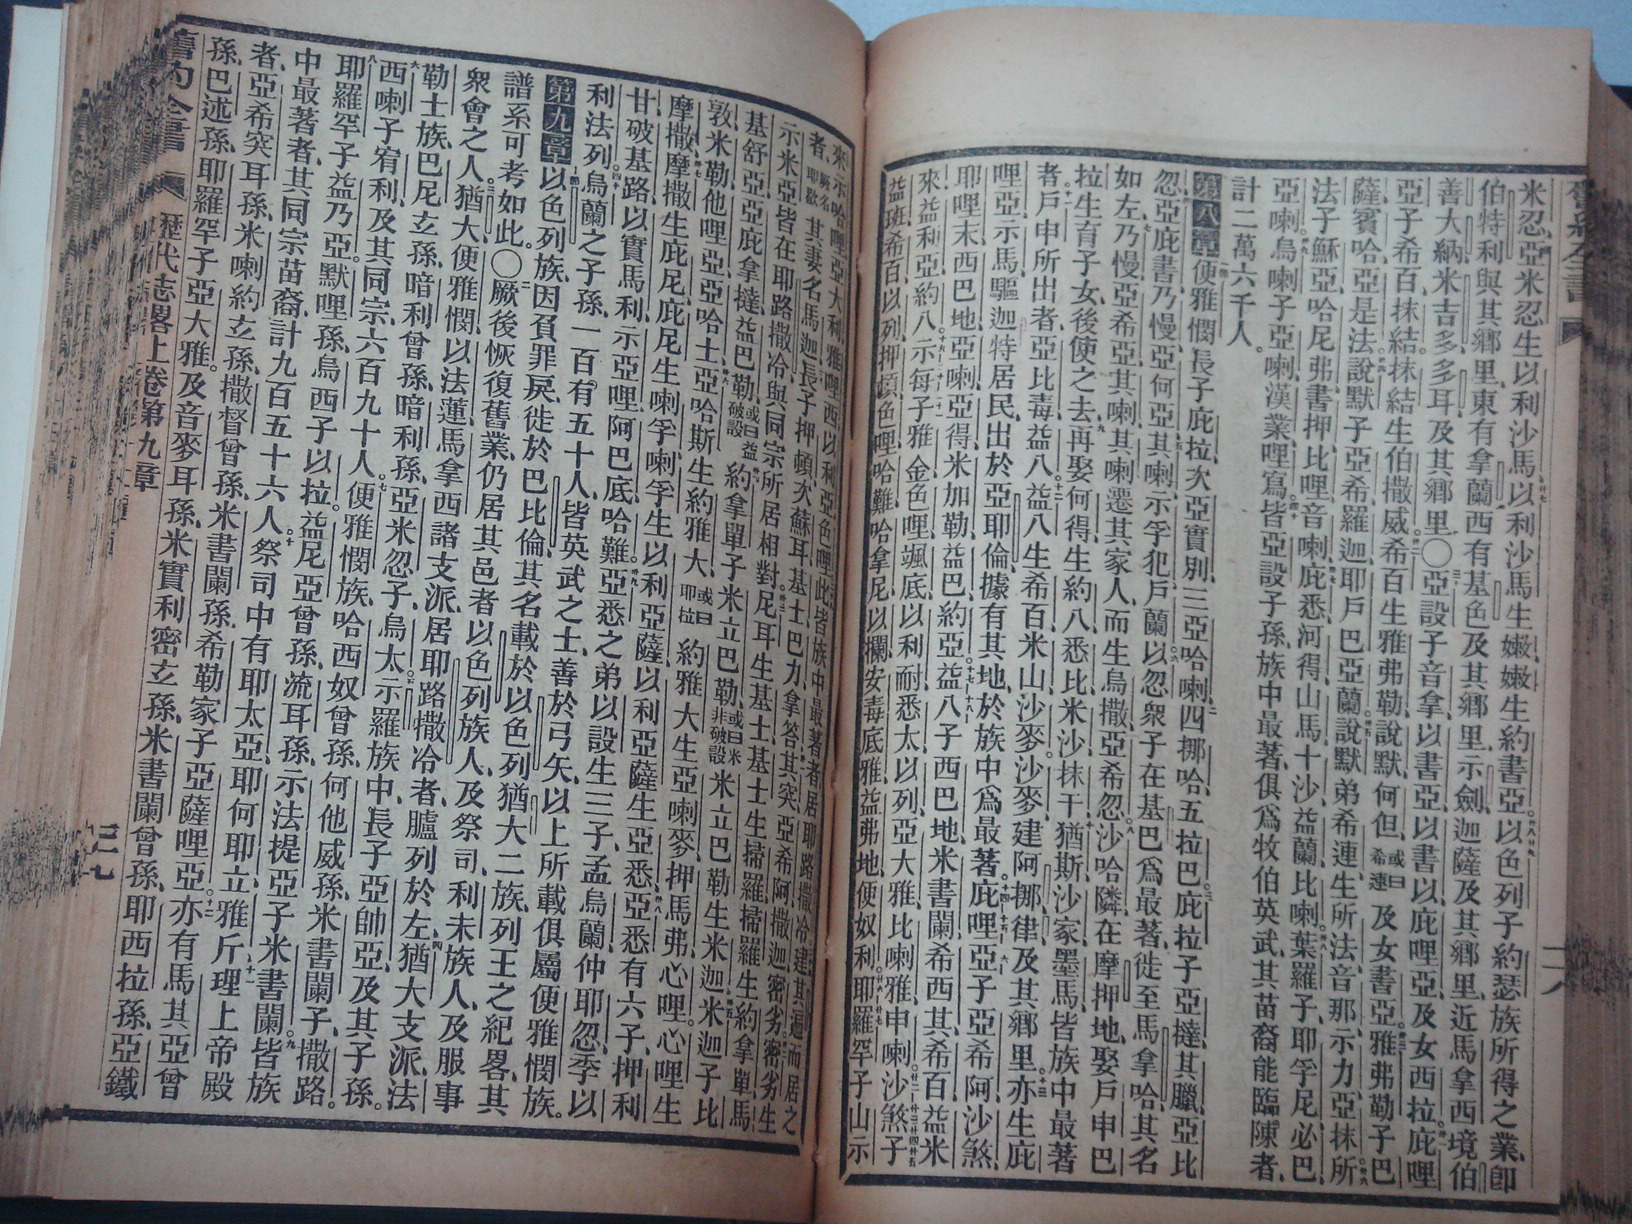 米忍、亞米忍生以利沙馬、以利沙馬生嫩、嫩生約書亞。以色列子約瑟族所得之業、卽
伯特利與其鄉里、東有拿蘭、西有基色及其鄉里、示劍、迦薩及其鄉里、近馬拿西境、伯
善、大納、米吉多、多耳及其鄉里。〇亞設子音拿、以書亞、以書以、庇哩亞、及女西拉。庇哩
亞子希百、抹結、抹結生伯撒威。希百生雅弗勒、說默、何但、或曰希連及女書亞。雅弗勒子巴
薩、賓哈、亞是法。說默子亞希、羅迦、耶戶巴、亞蘭。說默弟希連生所法、音那、示力、亞抹。所
法子穌亞、哈尼弗、書押、比哩、音喇、庇悉、河得、山馬、十沙、益蘭、比喇。葉羅子耶孚尼、必巴、
亞喇。烏喇子亞喇、漢業、哩寫。皆亞設子孫、族中最著、俱爲牧伯英武、其苗裔能臨陳者、
計二萬六千人。
第八章 便雅憫長子庇拉、次亞實別、三亞哈喇、四挪哈、五拉巴。庇拉子亞撻、其臘、亞比
忽、亞庇書、乃慢、亞何亞、其喇、示孚犯、戶蘭。以忽衆子在基巴爲最著、徙至馬拿哈、其名
如左、乃慢、亞希亞、其喇、其喇遷其家人、而生烏撒、亞希忽。沙哈隣在摩押地、娶戶申巴
拉生育子女、後使之去、再娶何得、生約八、悉比、米沙、抹干、猶斯、沙家、墨馬、皆族中最著
者。戶申所出者、亞比毒、益八、益八生希百、米山、沙麥、沙麥建阿挪、律、及其鄉里。亦生庇
哩亞、示馬、驅迦特居民、出於亞耶倫、據有其地、於族中爲最著。庇哩亞子亞希阿、沙煞、
耶哩末、西巴地、亞喇、亞得、米加勒、益巴、約亞。益八子西巴地、米書闌、希西其、希百、益米
來、益利亞、約八。示每子雅金、色哩、颯底、以利耐、悉太、以列、亞大雅、比喇雅、申喇。沙煞子
益班、希百、以列、押頓、色哩、哈難、哈拿尼、以攔、安毒底雅、益弗地、便奴利。耶羅罕子山示
來、示哈哩、亞大利、雅哩西、以利亞、色哩。此皆族中最著者、居耶路撒冷、建其邊而居之
者、厥名耶歇其妻名馬迦、長子押頓、次蘇耳、基士、巴力、拿答、其突、亞希阿、撒迦、密劣、密劣生
示米亞、皆在耶路撒冷、與同宗所居相對。尼耳生基士、基士生掃羅、掃羅生約拿單、馬
基舒亞、亞庇拿撻、益巴勒、或曰益破設約拿單子米立巴勒、或曰米非破設米立巴勒生米迦、米迦子比
敦、米勒、他哩亞、亞哈士、亞哈斯生約雅大、或曰耶拉約雅大生亞喇麥、押馬弗、心哩。心哩生
摩撒、摩撒生庇尼、庇尼生喇孚、喇孚生以利亞薩、以利亞薩生亞悉、亞悉有六子、押利
甘、破基路、以實馬利、示亞哩、阿巴底、哈難。亞悉之弟以設生三子、孟烏蘭、仲耶忽、季以
利法列。烏蘭之子孫、一百有五十人、皆英武之士、善於弓矢、以上所載、俱屬便雅憫族。
第九章 以色列族、因負罪戾、徙於巴比倫、其名載於以色列猶大二族、列王之紀畧、其
譜系可考如此。〇厥後恢復舊業、仍居其邑者、以色列族人、及祭司、利未族人、及服事
衆會之人、猶大便雅憫以法蓮馬拿西諸支派、居耶路撒冷者、臚列於左、猶大支派、法
勒士族、巴尼玄孫、暗利曾孫、暗利孫、亞米忽子、烏太。示羅族中、長子亞帥亞、及其子孫。
西喇子宥利、及其同宗六百九十人。便雅憫族、哈西奴曾孫、何他威孫、米書闌子、撒路。
耶羅罕子益乃亞、默哩孫、烏西子以拉。益尼亞曾孫、流耳孫、示法提亞子、米書闌。皆族
中最著者、其同宗苗裔、計九百五十六人。祭司中有耶太亞、耶何耶立、雅斤、理上帝殿
者、亞希突耳孫、米喇約玄孫、撒督曾孫、米書闌孫、希勒家子亞薩哩亞。亦有馬其亞曾
孫、巴述孫、耶羅罕子亞大雅。及音麥耳孫、米實利密玄孫、米書闌曾孫、耶西拉孫、亞鐵
舊約全書 歷代志畧上 卷第九章 三七